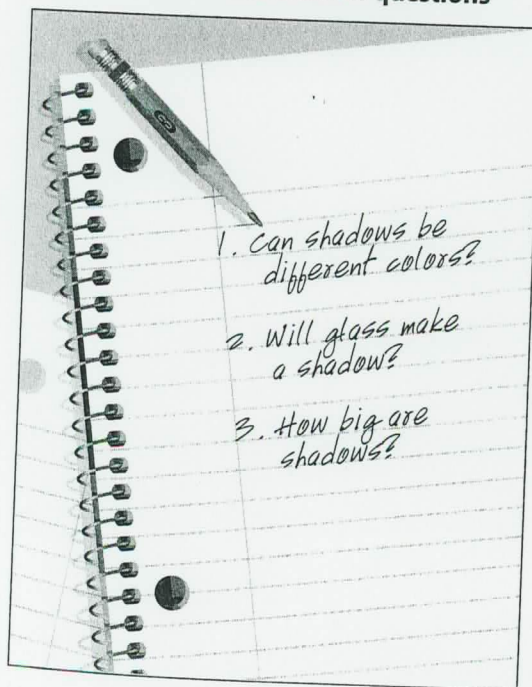 questions
1. Can shadows be
different colors?
2. Will glass make
a shadow?
3. How big are
shadows?